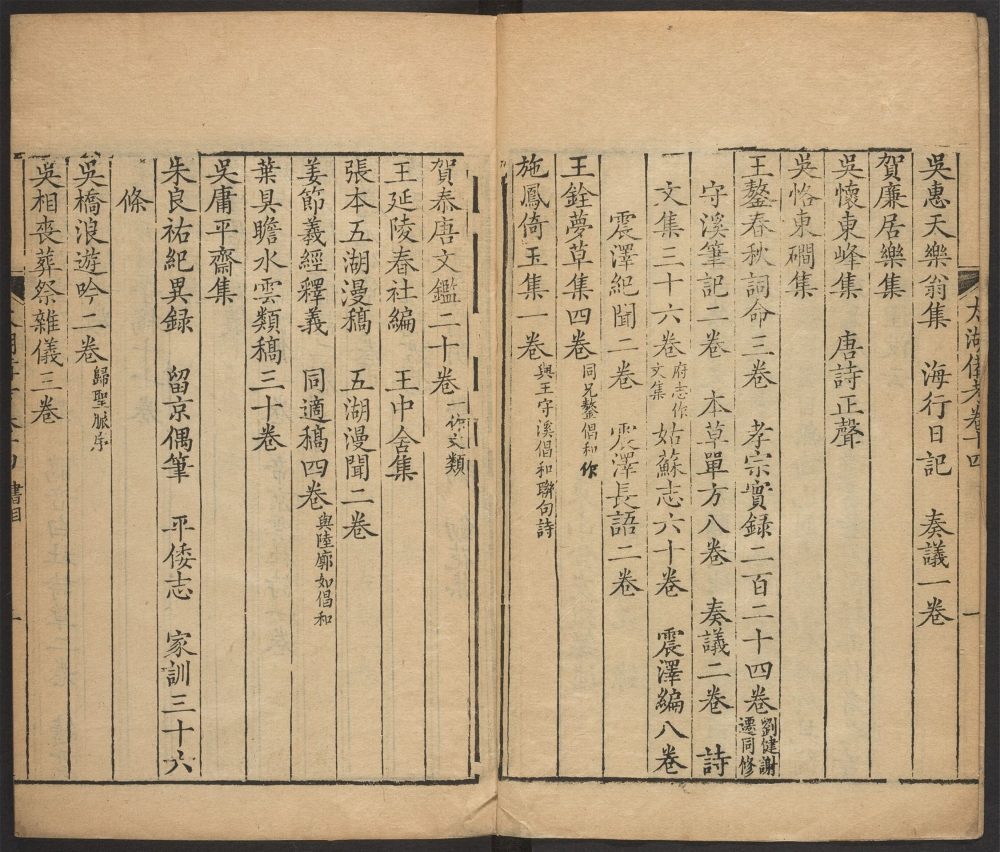 太湖備考卷十四 一
吳惠天樂翁集 海行日記 奏議一卷
賀廉居樂集
吳懷東峰集 唐詩正聲
吳恪東磵集
王鏊春秋詞命三卷 孝宗實録二百二十四卷劉健謝遷同修
守溪筆記二卷 本草單方八卷 奏議二卷 詩
文集三十六卷府志作文集 姑蘇志六十卷 震澤編八卷
震澤紀聞二卷 震澤長語二卷
王銓夢草集四卷同兄鏊倡和作
施鳳倚玉集一卷與王守溪倡和聯句詩
賀泰唐文鑑二十卷一作文類
王延陵春社編 王中舍集
張本五湖漫稿 五湖漫聞二卷
姜節義經釋義 同適稿四卷與陸廓如倡和
葉具瞻水雲類稿三十卷
吳庸平齋集
朱良祐紀異録 留京偶筆 平倭志 家訓三十六
條
吳橋浪遊吟二卷歸聖脈序
吳相喪葬祭雜儀三卷
書目 一